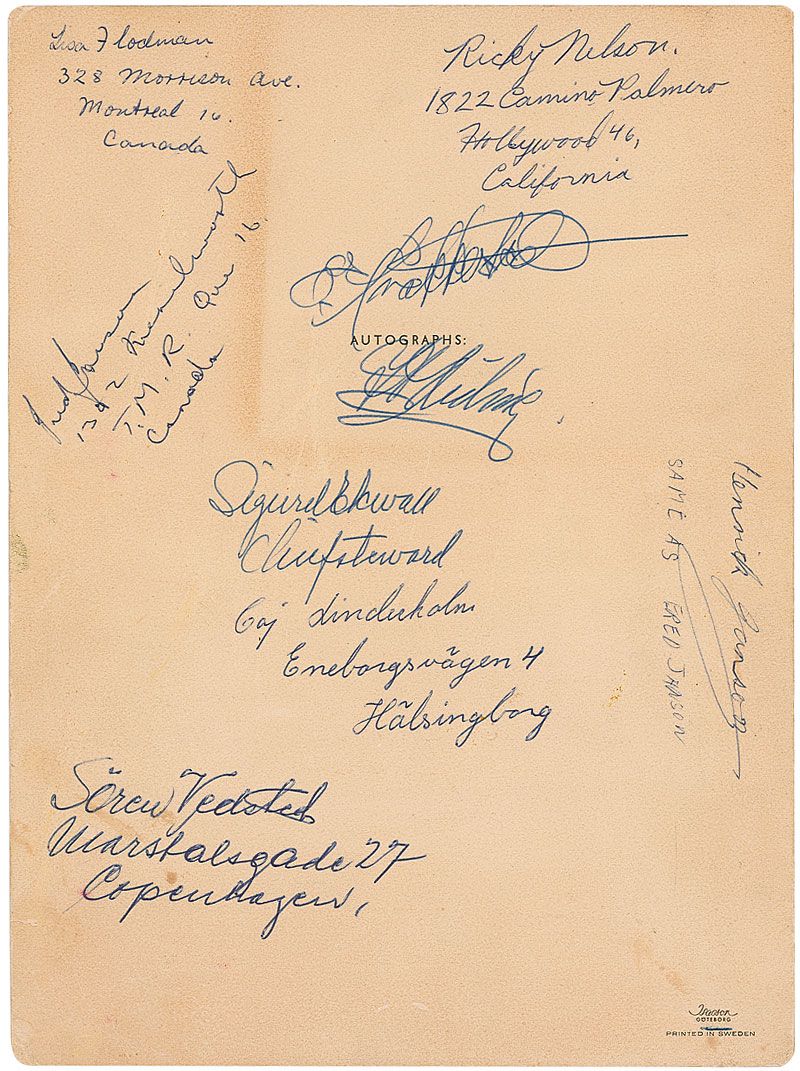 Lisa Flodman
328 Morrison Ave.
Montreal 16.
Canada
Ricky Nelson.
1822 Camino Palmero
Hollywood 46,
California
Fred Janson
1392 Kenilworth
T.M.R. Que 16.
Canada
AUTOGRAPHS:
Sigurd Ekwall
Chiefsteward
Lindeholm
Eneborgsvägen 4
Hälsingborg
Hennich Janson
SAME AS FRED JANSON
Sören Vedsted
Marstalsgade 27
Copenhagen,
GÖTEBORG
PRINTED IN SWEDEN